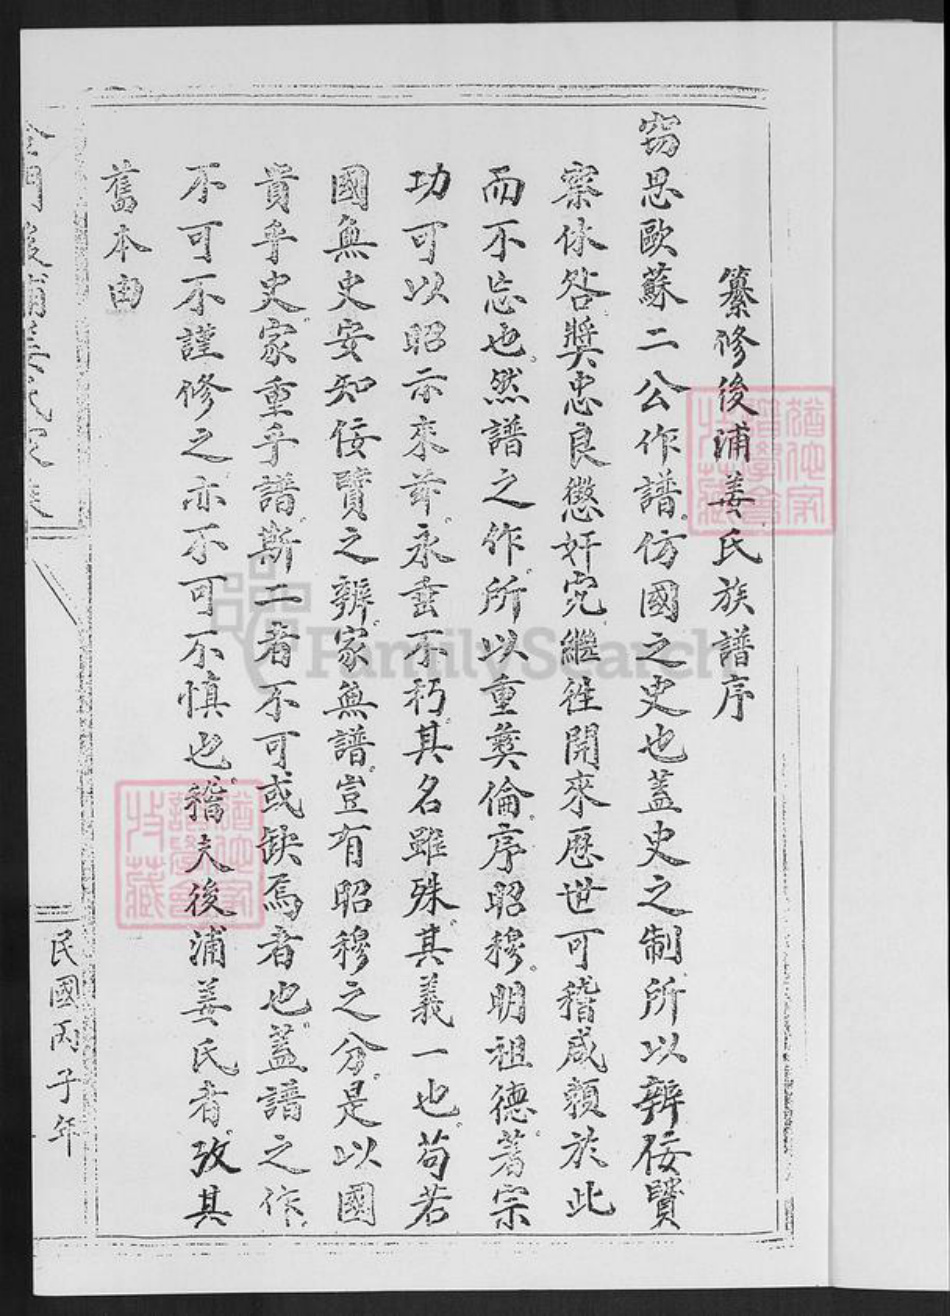 纂修後浦姜氏族譜序
窃思歐蘇二公作譜。仿國之史也蓋史之制所以辨佞賢
察休咎奬忠良懲奸宄繼徃開來歷世可稽咸賴於此
而不忘也。然譜之作。所以重彝倫序昭穆。明祖德。著宗
功可以昭示來茲。永垂不朽。其名雖殊。其義一也。苟若
國無史安知佞賢之辨。家無譜。豈有昭穆之分。是以國
貴乎史。家重乎譜。斯二者不可或缺焉者也。蓋譜之作。
不可不謹修之亦不可不慎也。稽夫後浦姜氏者。攷其
舊本由
金門後浦姜氏家譜
民國丙子年
FamilySearch